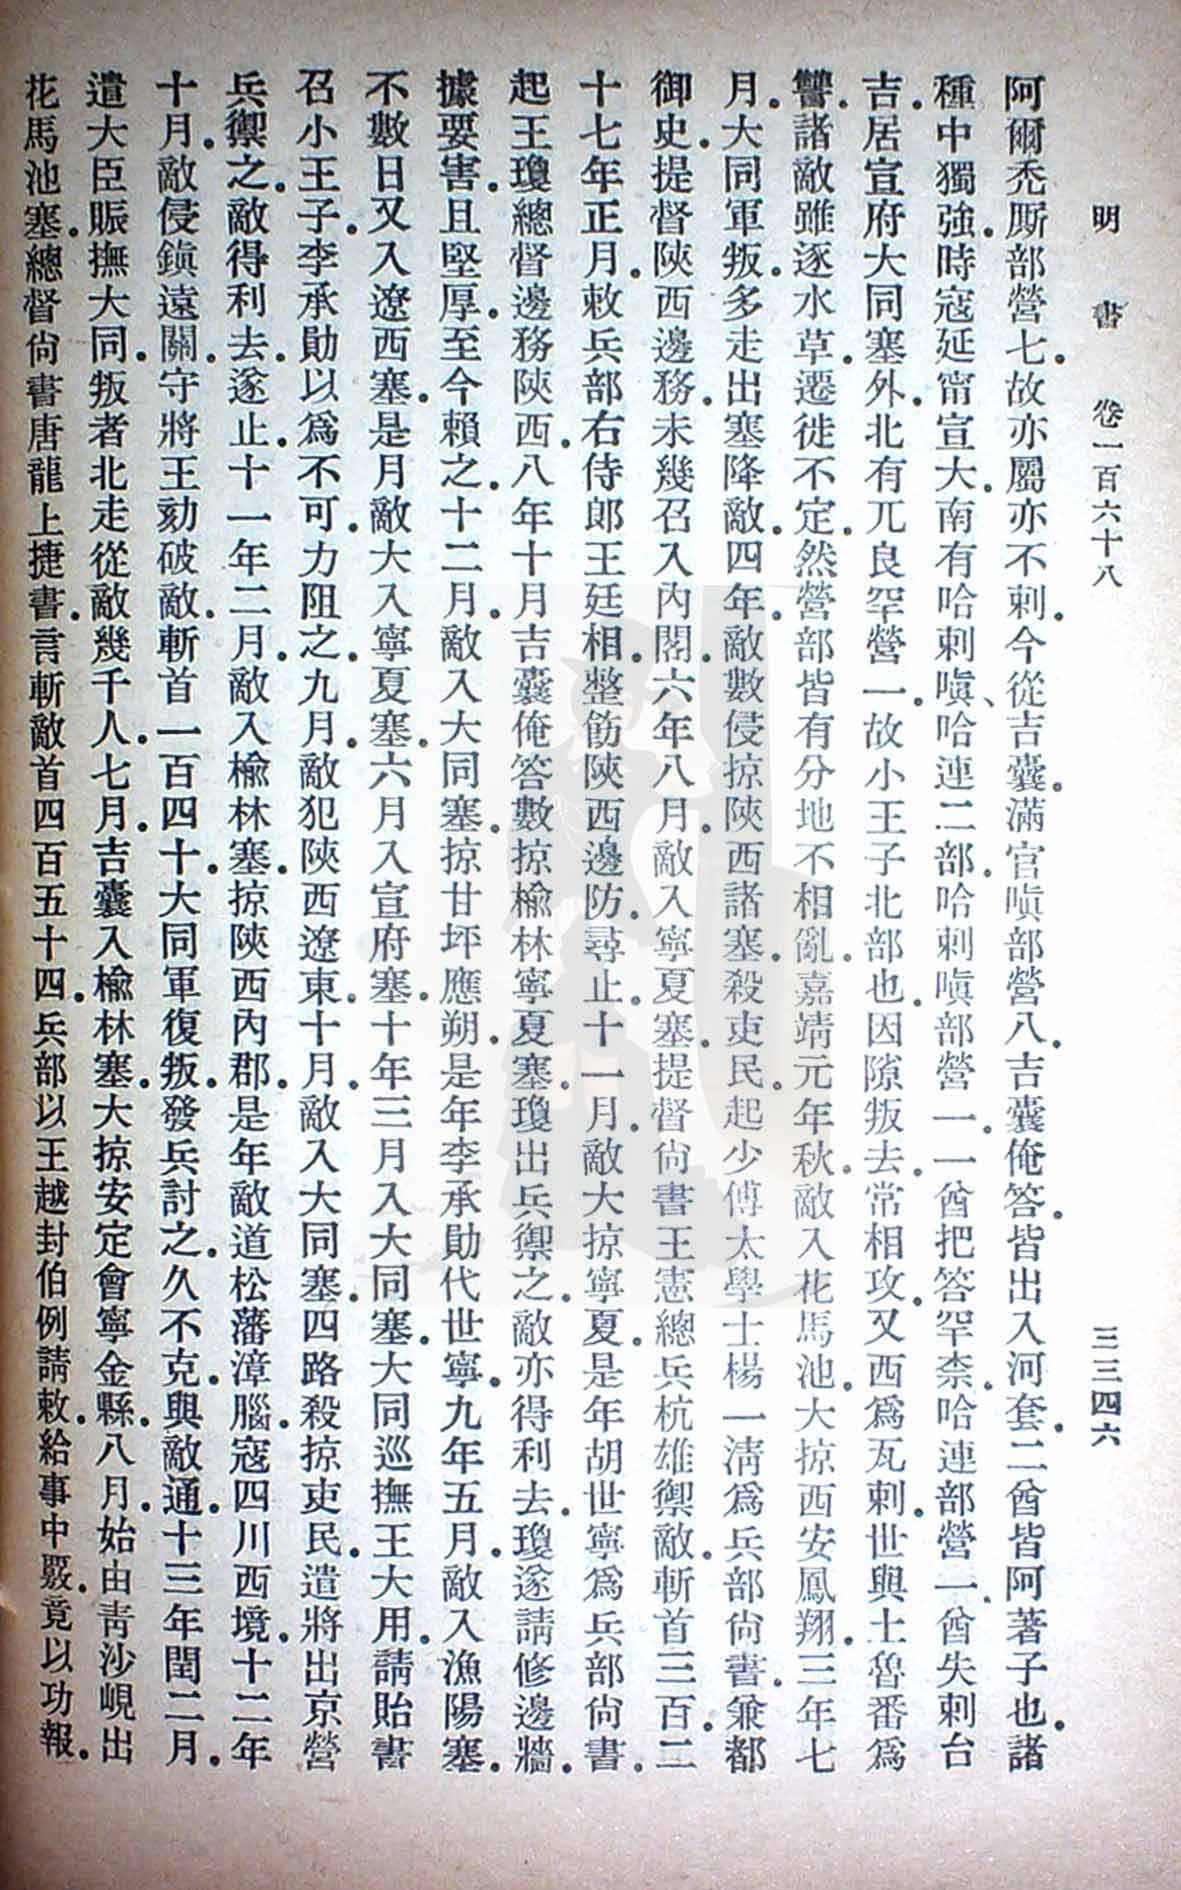 明書　卷一百六十八　三三四六
阿爾禿厮部營七故亦屬亦不剌今從吉囊滿官嗔部營八吉囊俺答皆出入河套二酋皆阿著子也諸
種中獨強時寇延甯宣大南有哈剌嗔、哈連二部哈剌嗔部營一一酋把答罕柰哈連部營一酋失剌台
吉居宣府大同塞外北有兀良罕營一故小王子北部也因隙叛去常相攻又西爲瓦剌世與土魯番爲
讐諸敵雖逐水草遷徙不定然營部皆有分地不相亂嘉靖元年秋敵入花馬池大掠西安鳳翔三年七
月大同軍叛多走出塞降敵四年敵數侵掠陝西諸塞殺吏民起少傅太學士楊一淸爲兵部尙書兼都
御史提督陝西邊務未幾召入內閣六年八月敵入寧夏塞提督尙書王憲總兵杭雄禦敵斬首三百二
十七年正月敕兵部右侍郎王廷相整飭陝西邊防尋止十一月敵大掠寧夏是年胡世寧爲兵部尙書
起王瓊總督邊務陝西八年十月吉囊俺答數掠榆林寧夏塞瓊出兵禦之敵亦得利去瓊遂請修邊牆
據要害且堅厚至今賴之十二月敵入大同塞掠甘坪應朔是年李承勛代世寧九年五月敵入漁陽塞
不數日又入遼西塞是月敵大入寧夏塞六月入宣府塞十年三月入大同塞大同巡撫王大用請貽書
召小王子李承勛以爲不可力阻之九月敵犯陝西遼東十月敵入大同塞四路殺掠吏民遣將出京營
兵禦之敵得利去遂止十一年二月敵入榆林塞掠陝西內郡是年敵道松藩漳腦寇四川西境十二年
十月敵侵鎭遠關守將王効破敵斬首一百四十大同軍復叛發兵討之久不克與敵通十三年閏二月
遣大臣賑撫大同叛者北走從敵幾千人七月吉囊入榆林塞大掠安定會寧金縣八月始由靑沙峴出
花馬池塞總督尙書唐龍上捷書言斬敵首四百五十四兵部以王越封伯例請敕給事中覈竟以功報